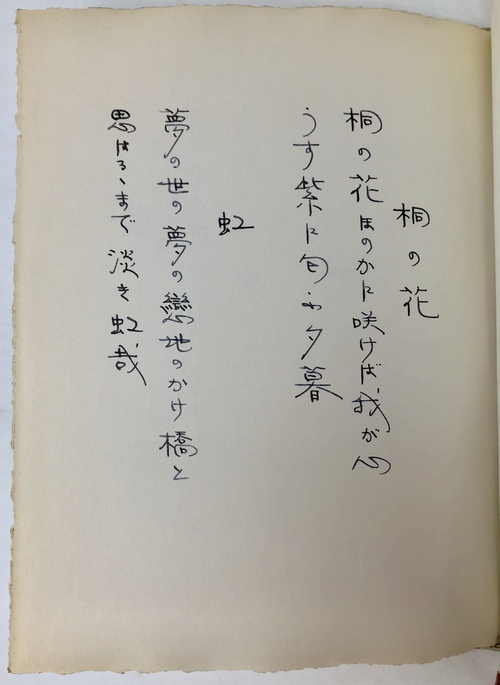 桐の花
桐の花ほのかに咲けば我が心
うす紫に匂ふ夕暮
虹
夢の世の夢の戀地のかけ橋と
思はるゝまで淡き虹哉